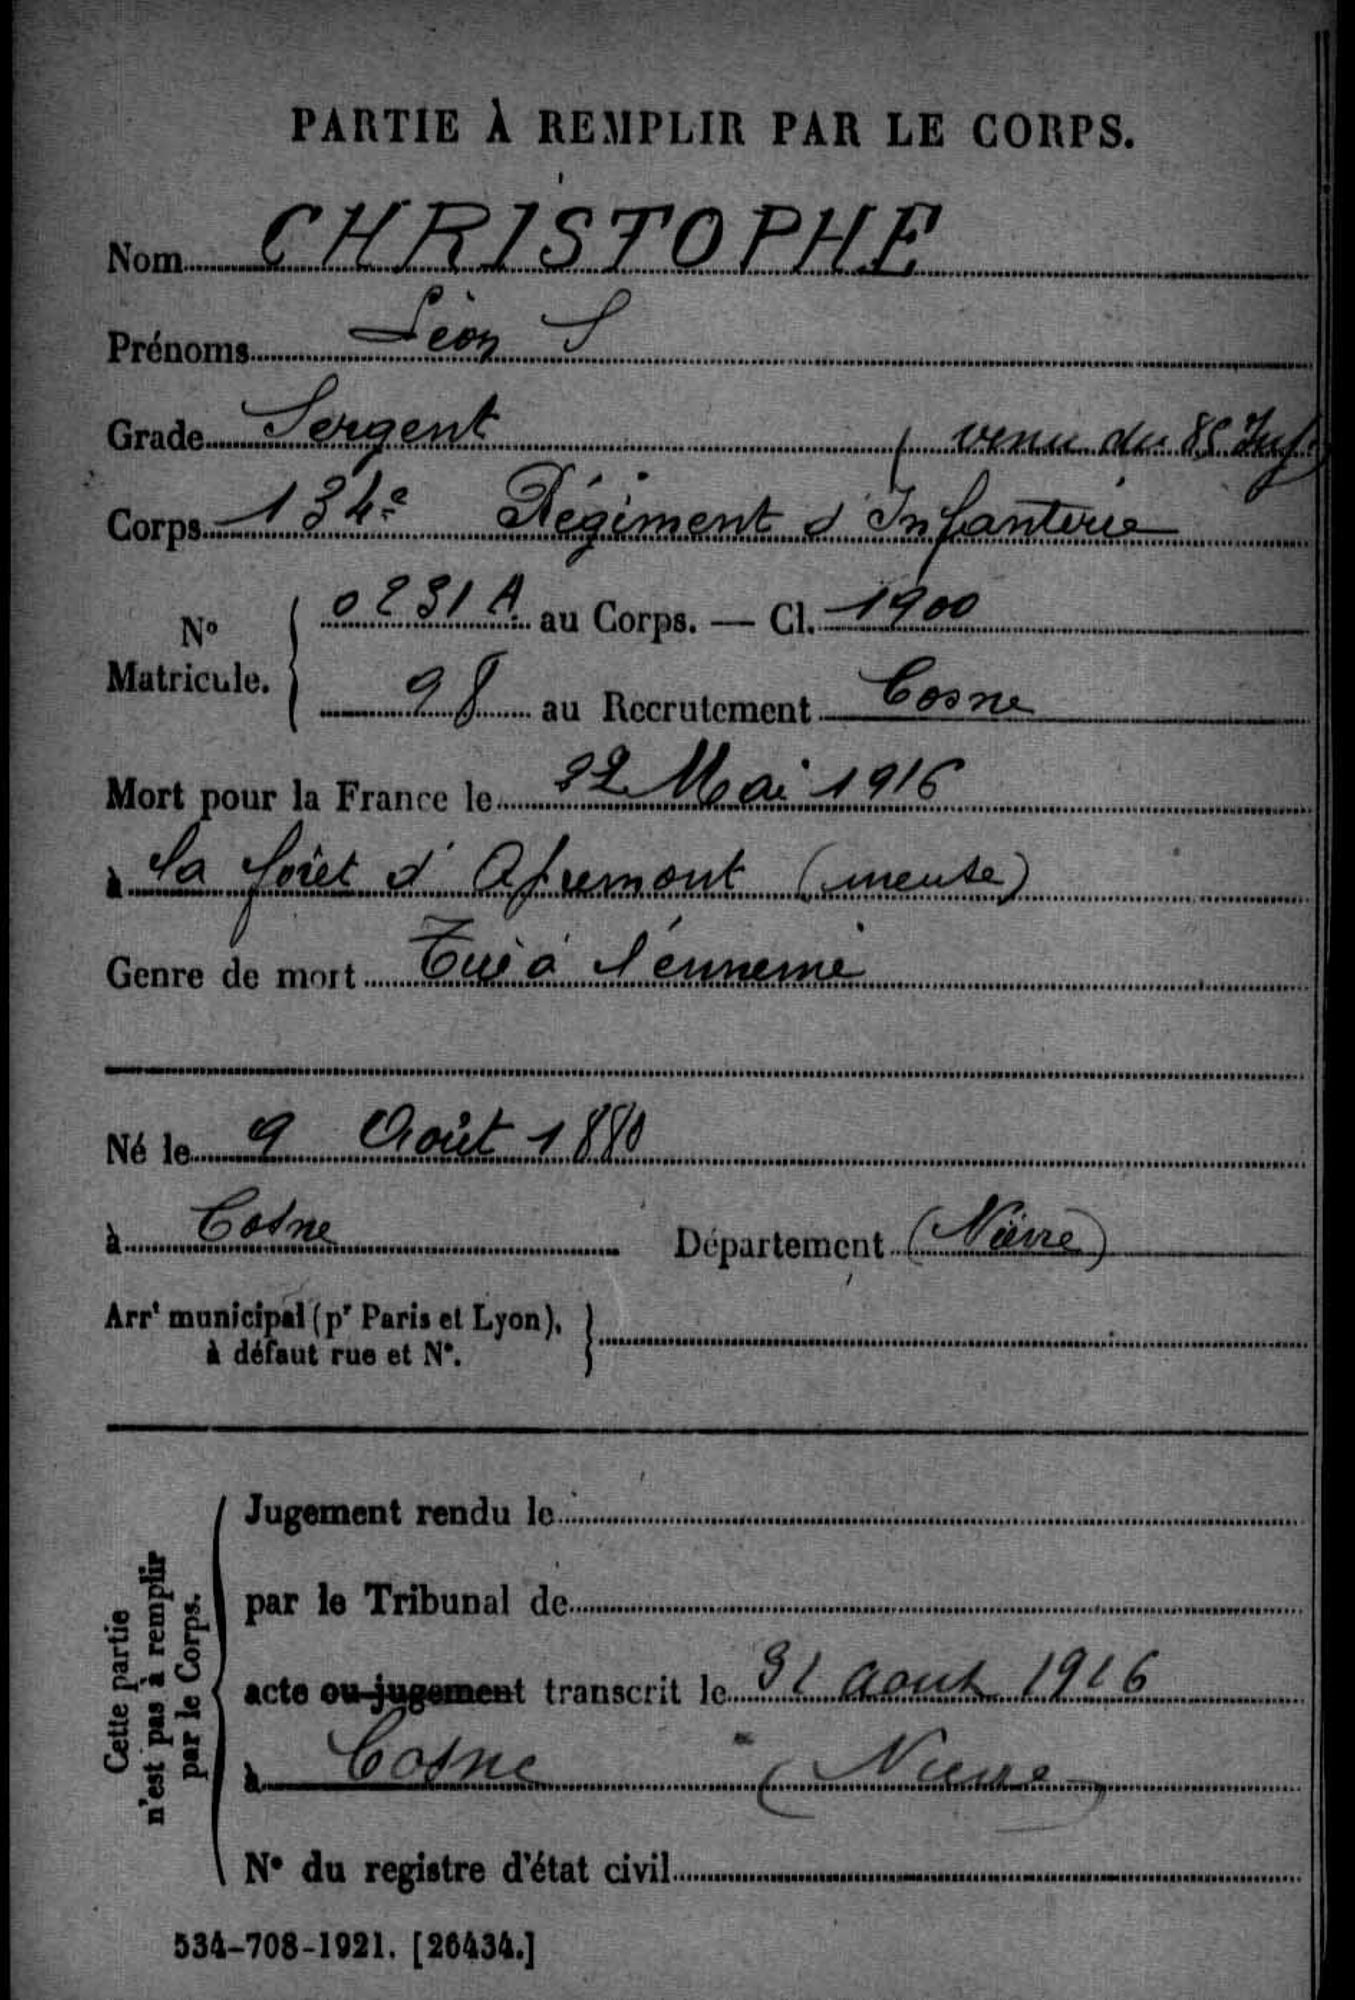 PARTIE À REMPLIR PAR LE CORPS.
Nom CHRISTOPHE
Prénoms Léon S
Grade Sergent (venu du 85 Inf)
Corps 134e Régiment d'Infanterie
No Matricule. 0231 A. au Corps. — Cl. 1900
98 au Recrutement Cosne
Mort pour la France le 22 Mai 1916
à la forêt d'Apremont (meuse)
Genre de mort Tué à l'ennemie
Né le 9 Août 1880
à Cosne Département (Nièvre)
Arrt municipal (pr Paris et Lyon), à défaut rue et No.
Cette partie n'est pas à remplir par le Corps.
Jugement rendu le
par le Tribunal de
acte ou jugement transcrit le 31 aout 1916
à Cosne (Nievre)
No du registre d'état civil
534-708-1921. [26434.]